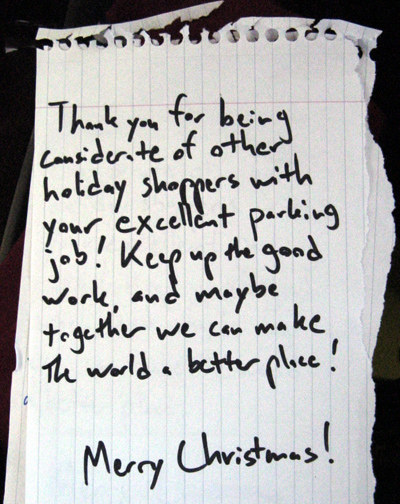 Thank you for being
considerate of other
holiday shoppers with
your excellent parking
job! Keep up the good
work, and maybe
together we can make
the world a better place!
Merry Christmas!